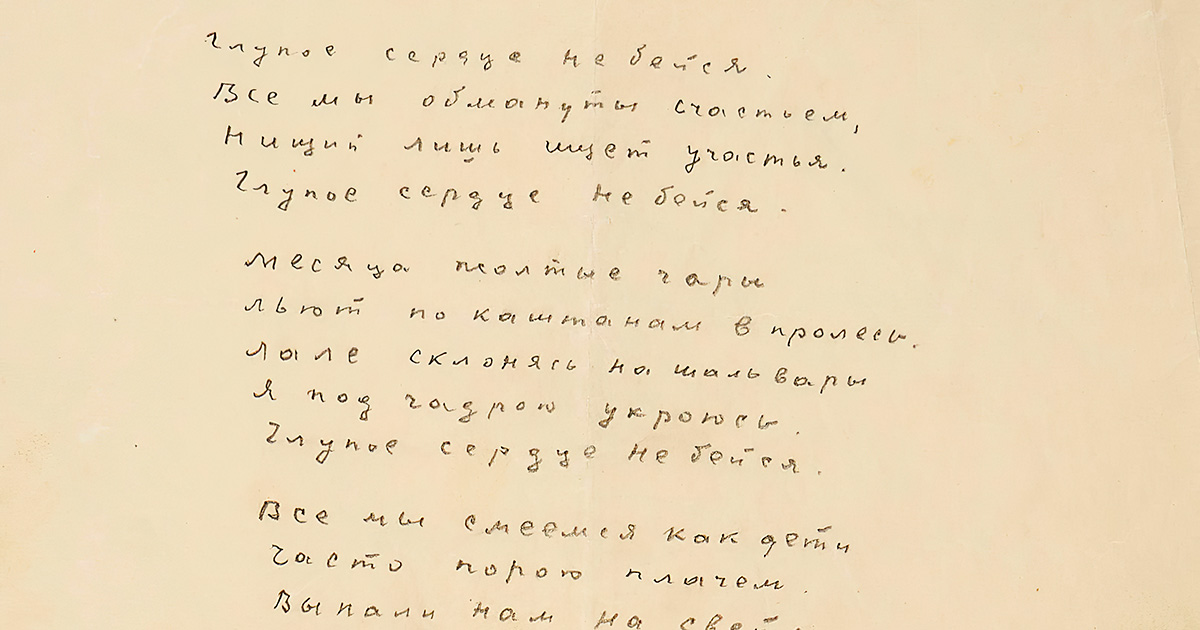 Глупое сердце не бейся.
Все мы обмануты счастьем,
Нищий лишь ищет участья.
Глупое сердце не бейся.
Месяца жолтые чары
льют по каштанам в пролесь.
Лале склонясь на шальвары
Я под чадрою укроюсь.
Глупое сердце не бейся.
Все мы смеемся как дети
Часто порою плачем.
Выпали нам на